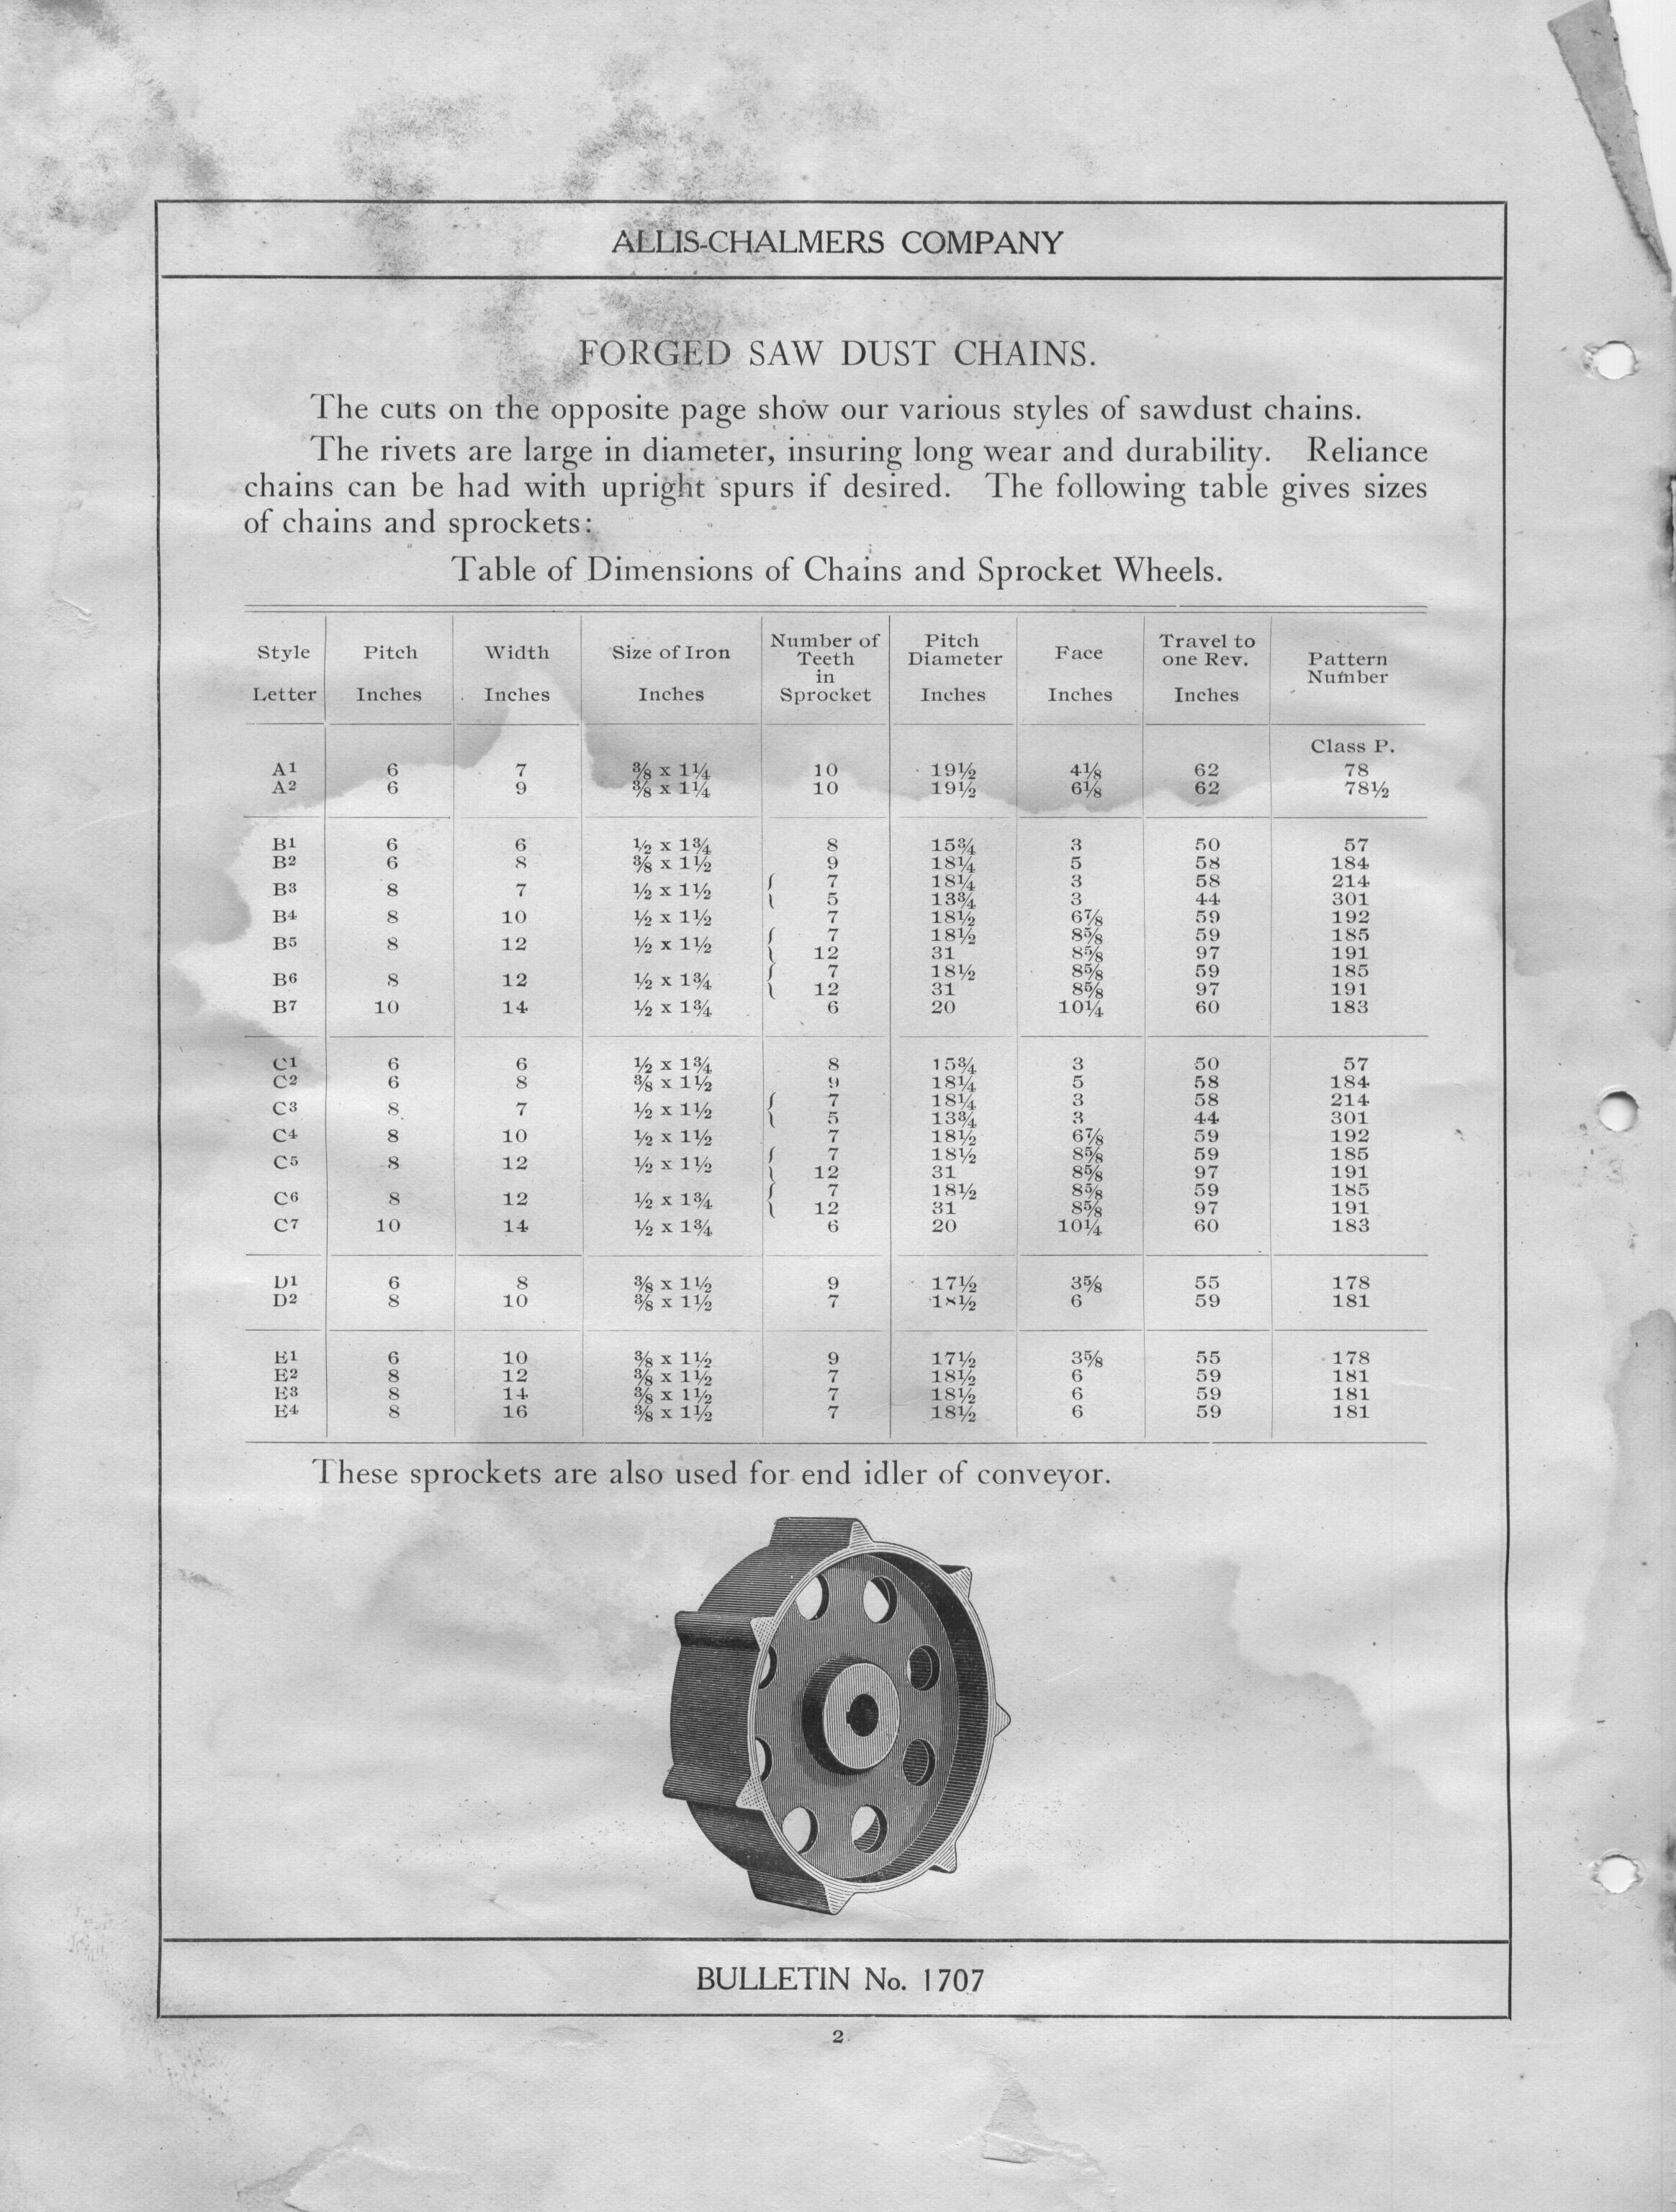 ALLIS-CHALMERS COMPANY
FORGED SAW DUST CHAINS.
The cuts on the opposite page show our various styles of sawdust chains.
The rivets are large in diameter, insuring long wear and durability. Reliance
chains can be had with upright spurs if desired. The following table gives sizes
of chains and sprockets:
Table of Dimensions of Chains and Sprocket Wheels.
Style Letter | Pitch Inches | Width Inches | Size of Iron Inches | Number of Teeth in Sprocket | Pitch Diameter Inches | Face Inches | Travel to one Rev. Inches | Pattern Number
Class P.
A1 6 7 ⅜ x 1¼ 10 19½ 4⅛ 62 78
A2 6 9 ⅜ x 1¼ 10 19½ 6⅛ 62 78½
B1 6 6 ½ x 1¾ 8 15¾ 3 50 57
B2 6 8 ⅜ x 1½ 9 18¼ 5 58 184
B3 8 7 ½ x 1½ { 7 18¼ 3 58 214
5 13¾ 3 44 301
B4 8 10 ½ x 1½ 7 18½ 6⅞ 59 192
B5 8 12 ½ x 1½ { 7 18½ 8⅝ 59 185
12 31 8⅝ 97 191
B6 8 12 ½ x 1¾ { 7 18½ 8⅝ 59 185
12 31 8⅝ 97 191
B7 10 14 ½ x 1¾ 6 20 10¼ 60 183
C1 6 6 ½ x 1¾ 8 15¾ 3 50 57
C2 6 8 ⅜ x 1½ 9 18¼ 5 58 184
C3 8 7 ½ x 1½ { 7 18¼ 3 58 214
5 13¾ 3 44 301
C4 8 10 ½ x 1½ 7 18½ 6⅞ 59 192
C5 8 12 ½ x 1½ { 7 18½ 8⅝ 59 185
12 31 8⅝ 97 191
C6 8 12 ½ x 1¾ { 7 18½ 8⅝ 59 185
12 31 8⅝ 97 191
C7 10 14 ½ x 1¾ 6 20 10¼ 60 183
D1 6 8 ⅜ x 1½ 9 17½ 3⅝ 55 178
D2 8 10 ⅜ x 1½ 7 18½ 6 59 181
E1 6 10 ⅜ x 1½ 9 17½ 3⅝ 55 178
E2 8 12 ⅜ x 1½ 7 18½ 6 59 181
E3 8 14 ⅜ x 1½ 7 18½ 6 59 181
E4 8 16 ⅜ x 1½ 7 18½ 6 59 181
These sprockets are also used for end idler of conveyor.
BULLETIN No. 1707
2